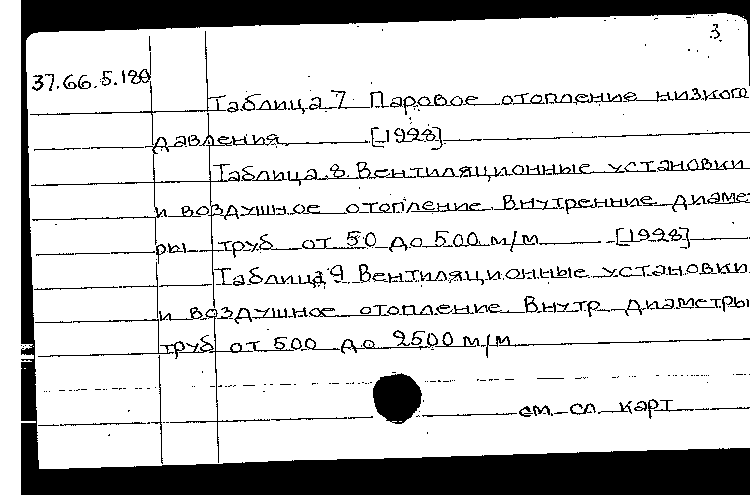 3
37.66.5.180
Таблица 7 Паровое отопление низкого
давления [1928]
Таблица 8 Вентиляционные установки
и воздушное отопление. Внутренние диамет
ры труб от 50 до 500 м/м [1928]
Таблица 9 Вентиляционные установки
и воздушное отопление. Внутр диаметры
труб от 500 до 2500 м/м
см. сл. карт